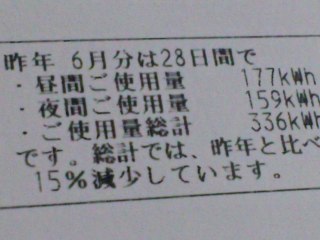 昨年 6月分は28日間で
・昼間ご使用量 177kWh
・夜間ご使用量 159kWh
・ご使用量総計 336kWh
です。総計では、昨年と比べ
15%減少しています。